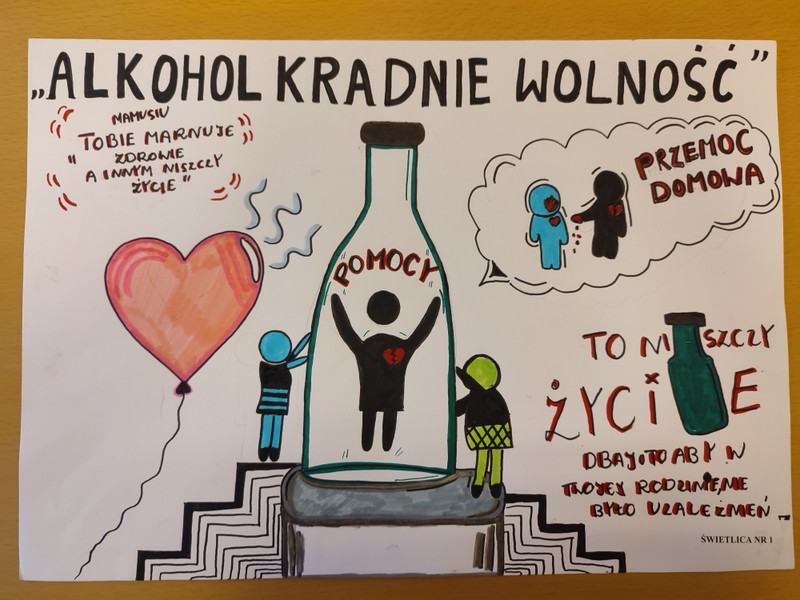 „ALKOHOL KRADNIE WOLNOŚĆ”
MAMUSIU
TOBIE MARNUJE
" ZDROWIE
A INNYM NISZCZY
ŻYCIE"
POMOCY
PRZEMOC
DOMOWA
TO NISZCZY
ŻYCIE
DBAJ, TO ABY W
TWOJEJ RODZINIE, NIE
BYŁO UZALEŻNIEŃ
ŚWIETLICA NR 1